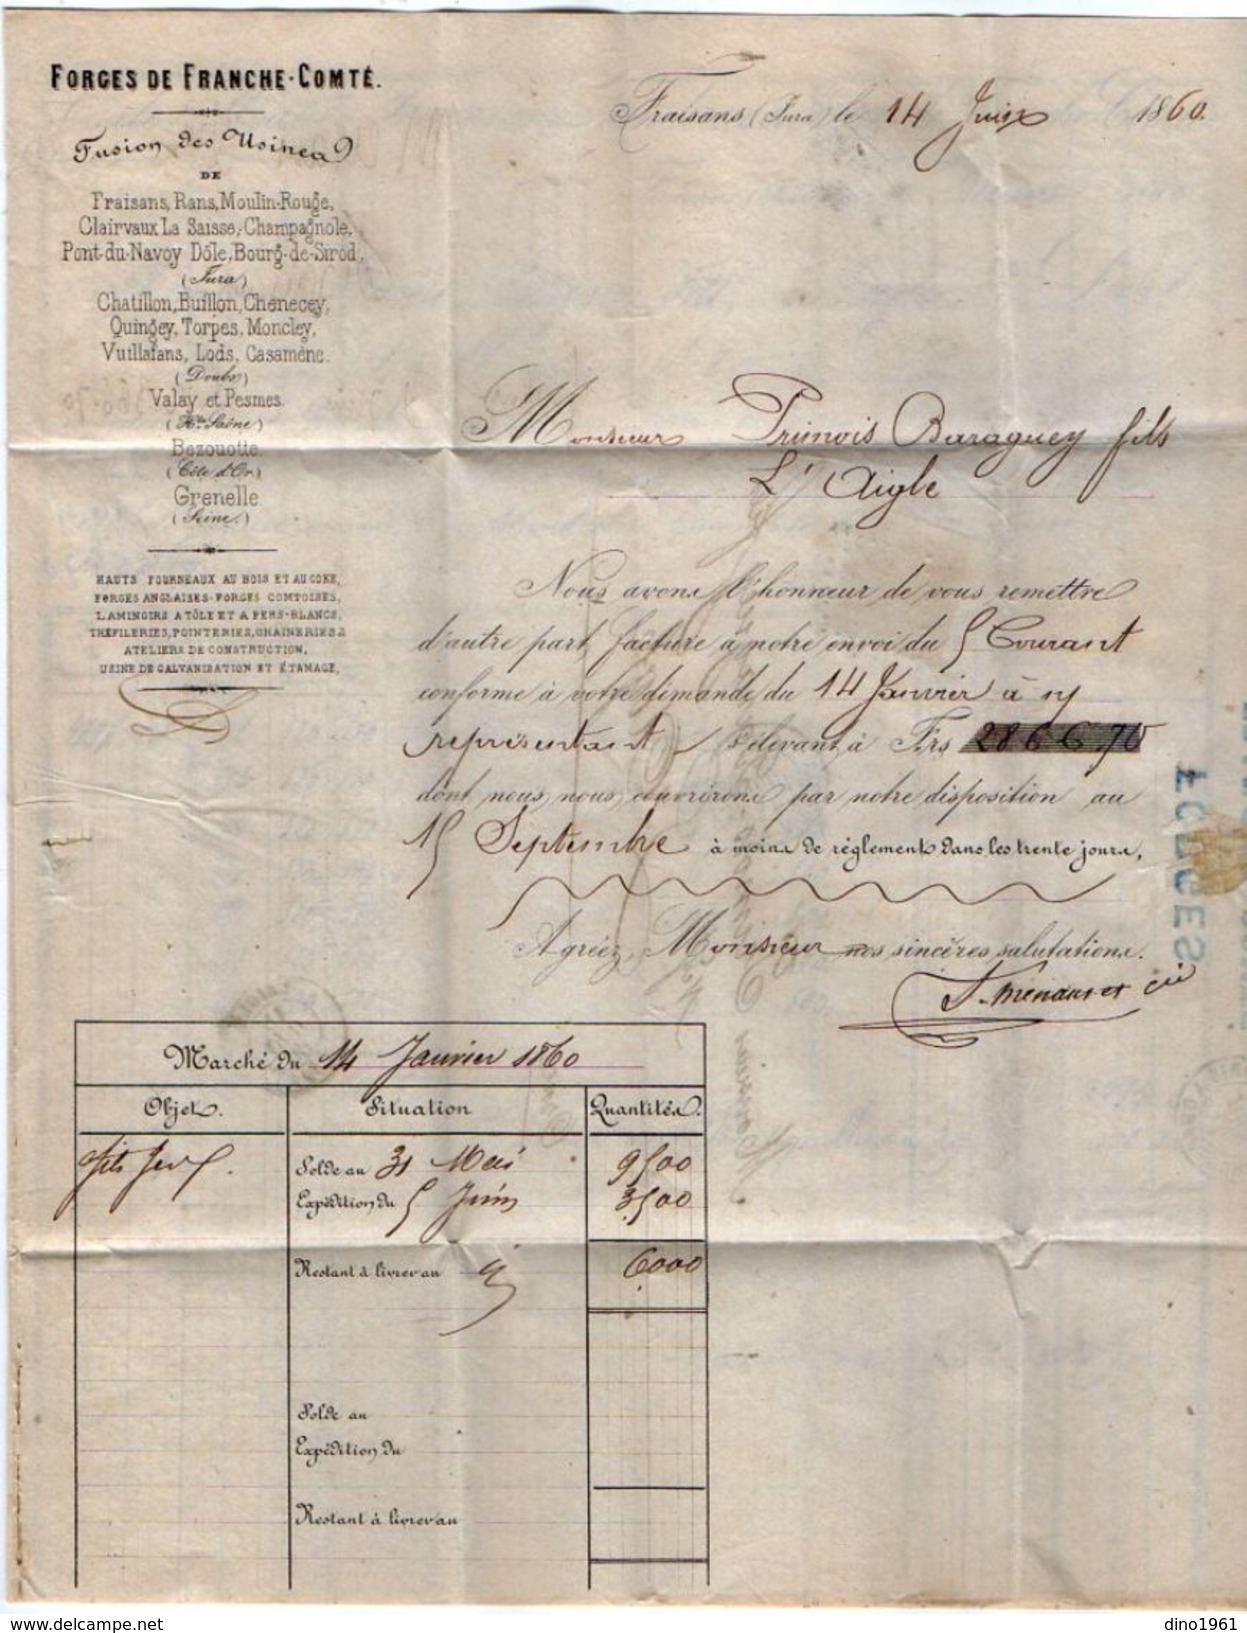 FORGES DE FRANCHE-COMTÉ.
Fusion des Usines
DE
Fraisans, Rans, Moulin-Rouge,
Clairvaux La Saisse, Champagnole,
Pont-du-Navoy Dôle, Bourg-de-Sirod,
(Jura)
Chatillon, Buillon, Chenecey,
Quingey, Torpes, Moncley,
Vuillafans, Lods, Casamène.
(Doubs)
Valay et Pesmes.
(Hte Saône)
Bezouotte.
(Côte d'Or)
Grenelle.
(Seine.)
HAUTS FOURNEAUX AU BOIS ET AU COKE,
FORGES ANGLAISES-FORGES COMTOISES,
LAMINOIRS A TÔLE ET A FERS-BLANCS,
TRÉFILERIES, POINTERIES, CHAINERIES &
ATELIERS DE CONSTRUCTION.
USINE DE GALVANISATION ET ÉTAMAGE,
Fraisans (Jura) le 14 Juin 1860.
Monsieur Primois Baraguey fils
L'Aigle
Nous avons l'honneur de vous remettre
d'autre part facture à notre envoi du 5 Courant
conforme à votre demande du 14 Janvier à
représentant s'élevant à Frs 2866.70
dont nous nous couvrirons par notre disposition au
15 Septembre à moins de réglement dans les trente jours,
Agréez, Monsieur nos sincères salutations.
Marché du 14 Janvier 1860
Objet. Situation Quantités.
Solde au 31 Mai 9500
Expédition du 5 Juin 3500
Restant à livrer au 6000
Solde au
Expédition du
Restant à livrer au
dino1961